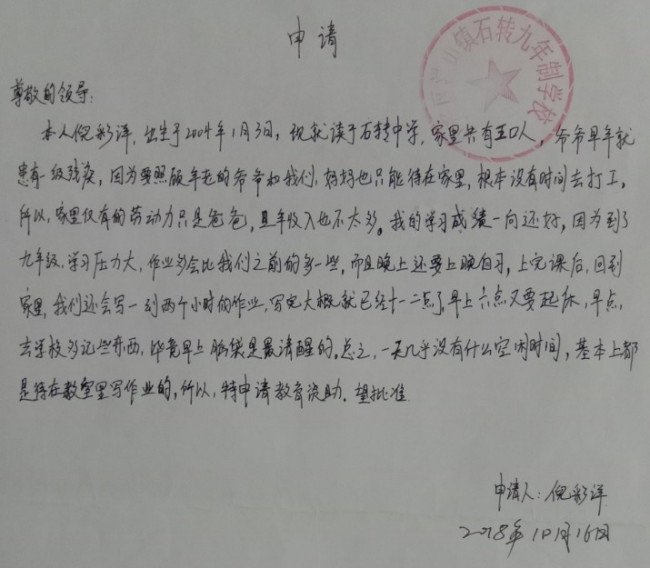 申请
镇石转九年制学校
尊敬的领导:
本人倪彩洋,出生于2004年1月3日,现就读于石转中学,家里共有五口人,爷爷早年就
患有一级残疾,因为要照顾年老的爷爷和我们,妈妈也只能待在家里,根本没有时间去打工。
所以,家里仅有的劳动力只是爸爸,且年收入也不太多。我的学习成绩一向还好,因为到了
九年级,学习压力大,作业多会比我们之前的多一些,而且晚上还要上晚自习,上完课后,回到
家里,我们还会写一到两个小时的作业,写完大概就已经十一二点了,早上六点又要起床,早点,
去学校多记些东西,毕竟早上脑袋是最清醒的,总之,一天几乎没有什么空闲时间,基本上都
是待在教室里写作业的,所以,特申请教育资助.望批准
申请人:倪彩洋
2018年10月16日